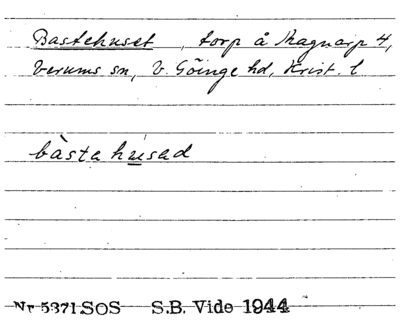 Bastehuset , torp å Magnarp 4,
Verums sn, V. Göinge hd, Krist. l
bàstahúsad
Nr 5371 SOS S.B. Vide 1944